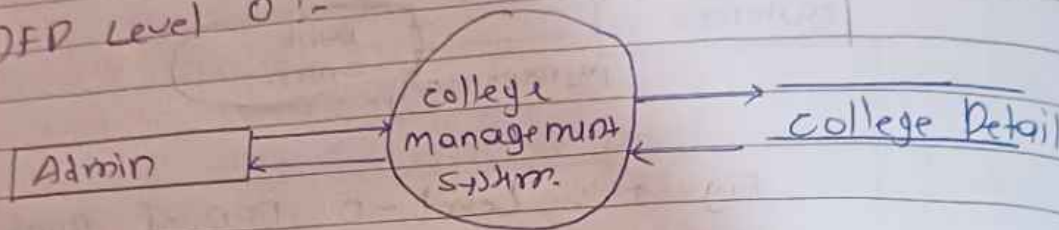 DFD Level 0 :-
college
management
system.
Admin
college Detail